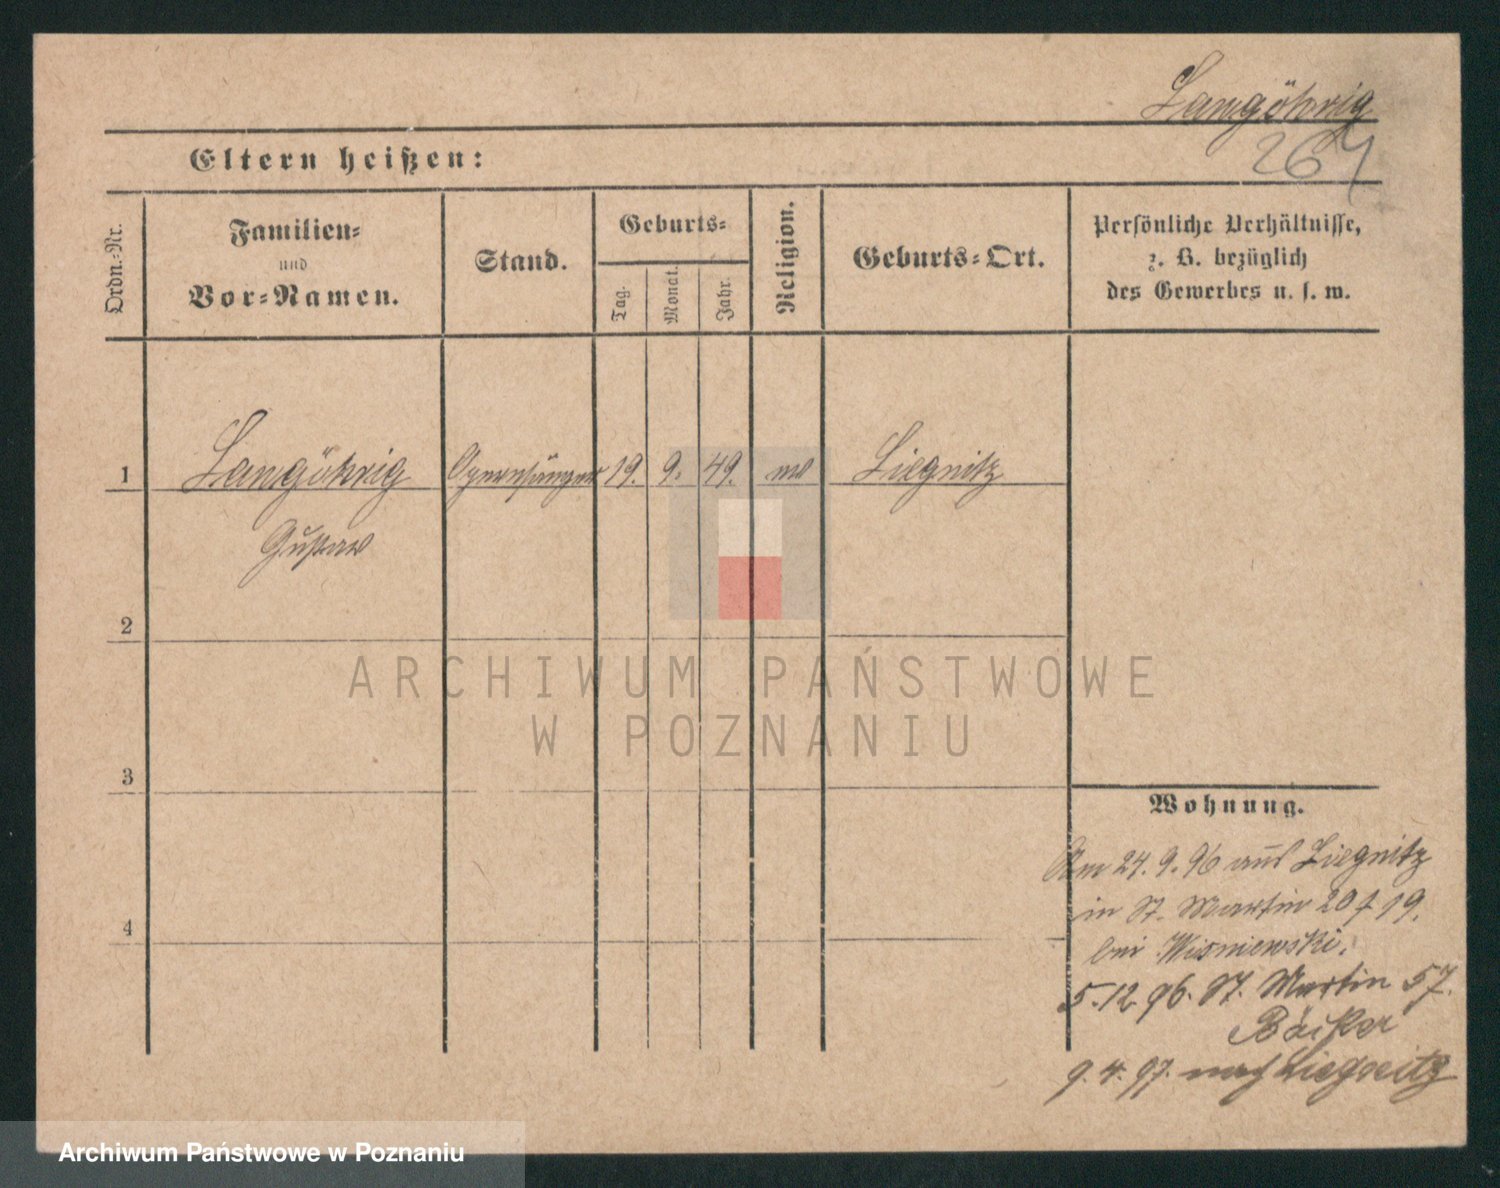 Langöhrig
264
Eltern heißen:
Ordn.-Nr.
Familien-
und
Vor-Namen.
Stand.
Geburts-
Tag.
Monat.
Jahr.
Religion.
Geburts-Ort.
Persönliche Verhältnisse,
z. B. bezüglich
des Gewerbes u. s. w.
1 Langöhrig Opernsänger 19. 9. 49. Liegnitz
Gustav
2
3
4
ARCHIWUM PAŃSTWOWE
W POZNANIU
Wohnung.
Am 24. 9. 96 aus Liegnitz
in St. Martin 20 19.
bei Wisniewski.
5. 12 96. St. Martin 57.
9. 4. 97. nach Liegnitz
Archiwum Państwowe w Poznaniu